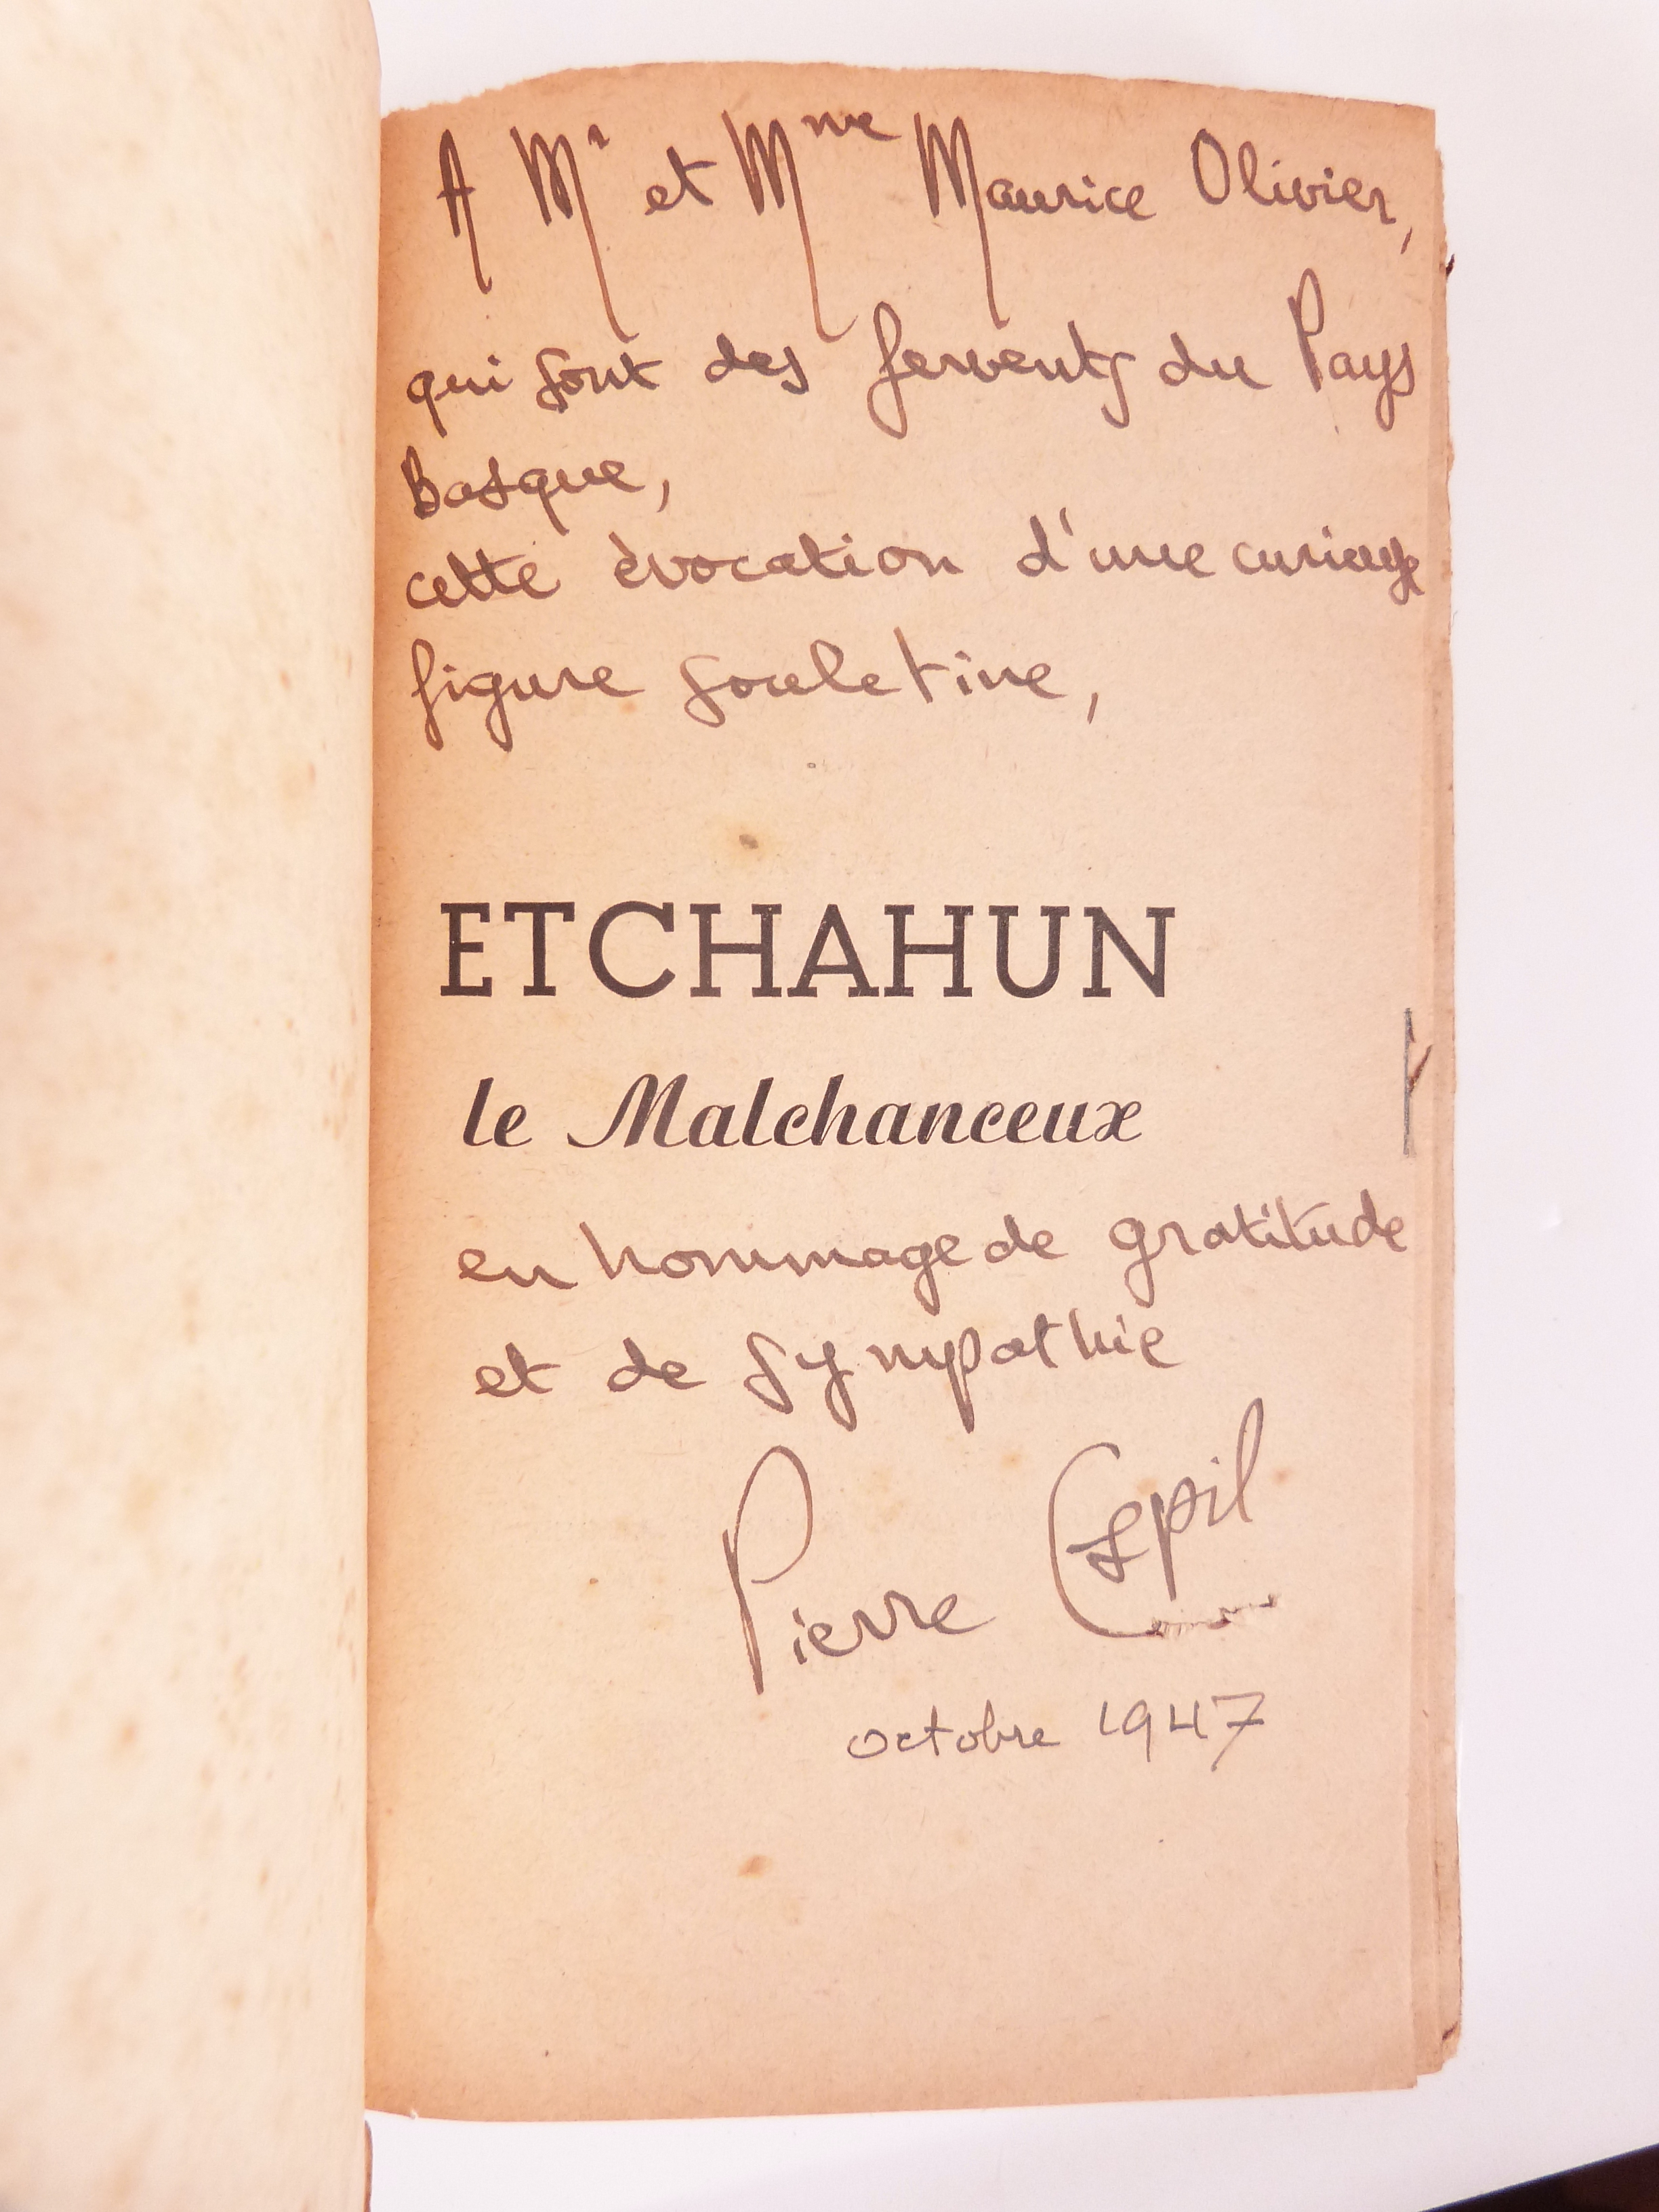 A Mr et Mme Maurice Olivier,
qui sont des fervents du Pays
Basque,
cette évocation d'une curieuse
figure souletine,
ETCHAHUN
le Malchanceux
en hommage de gratitude
et de sympathie
Pierre Espil
octobre 1947